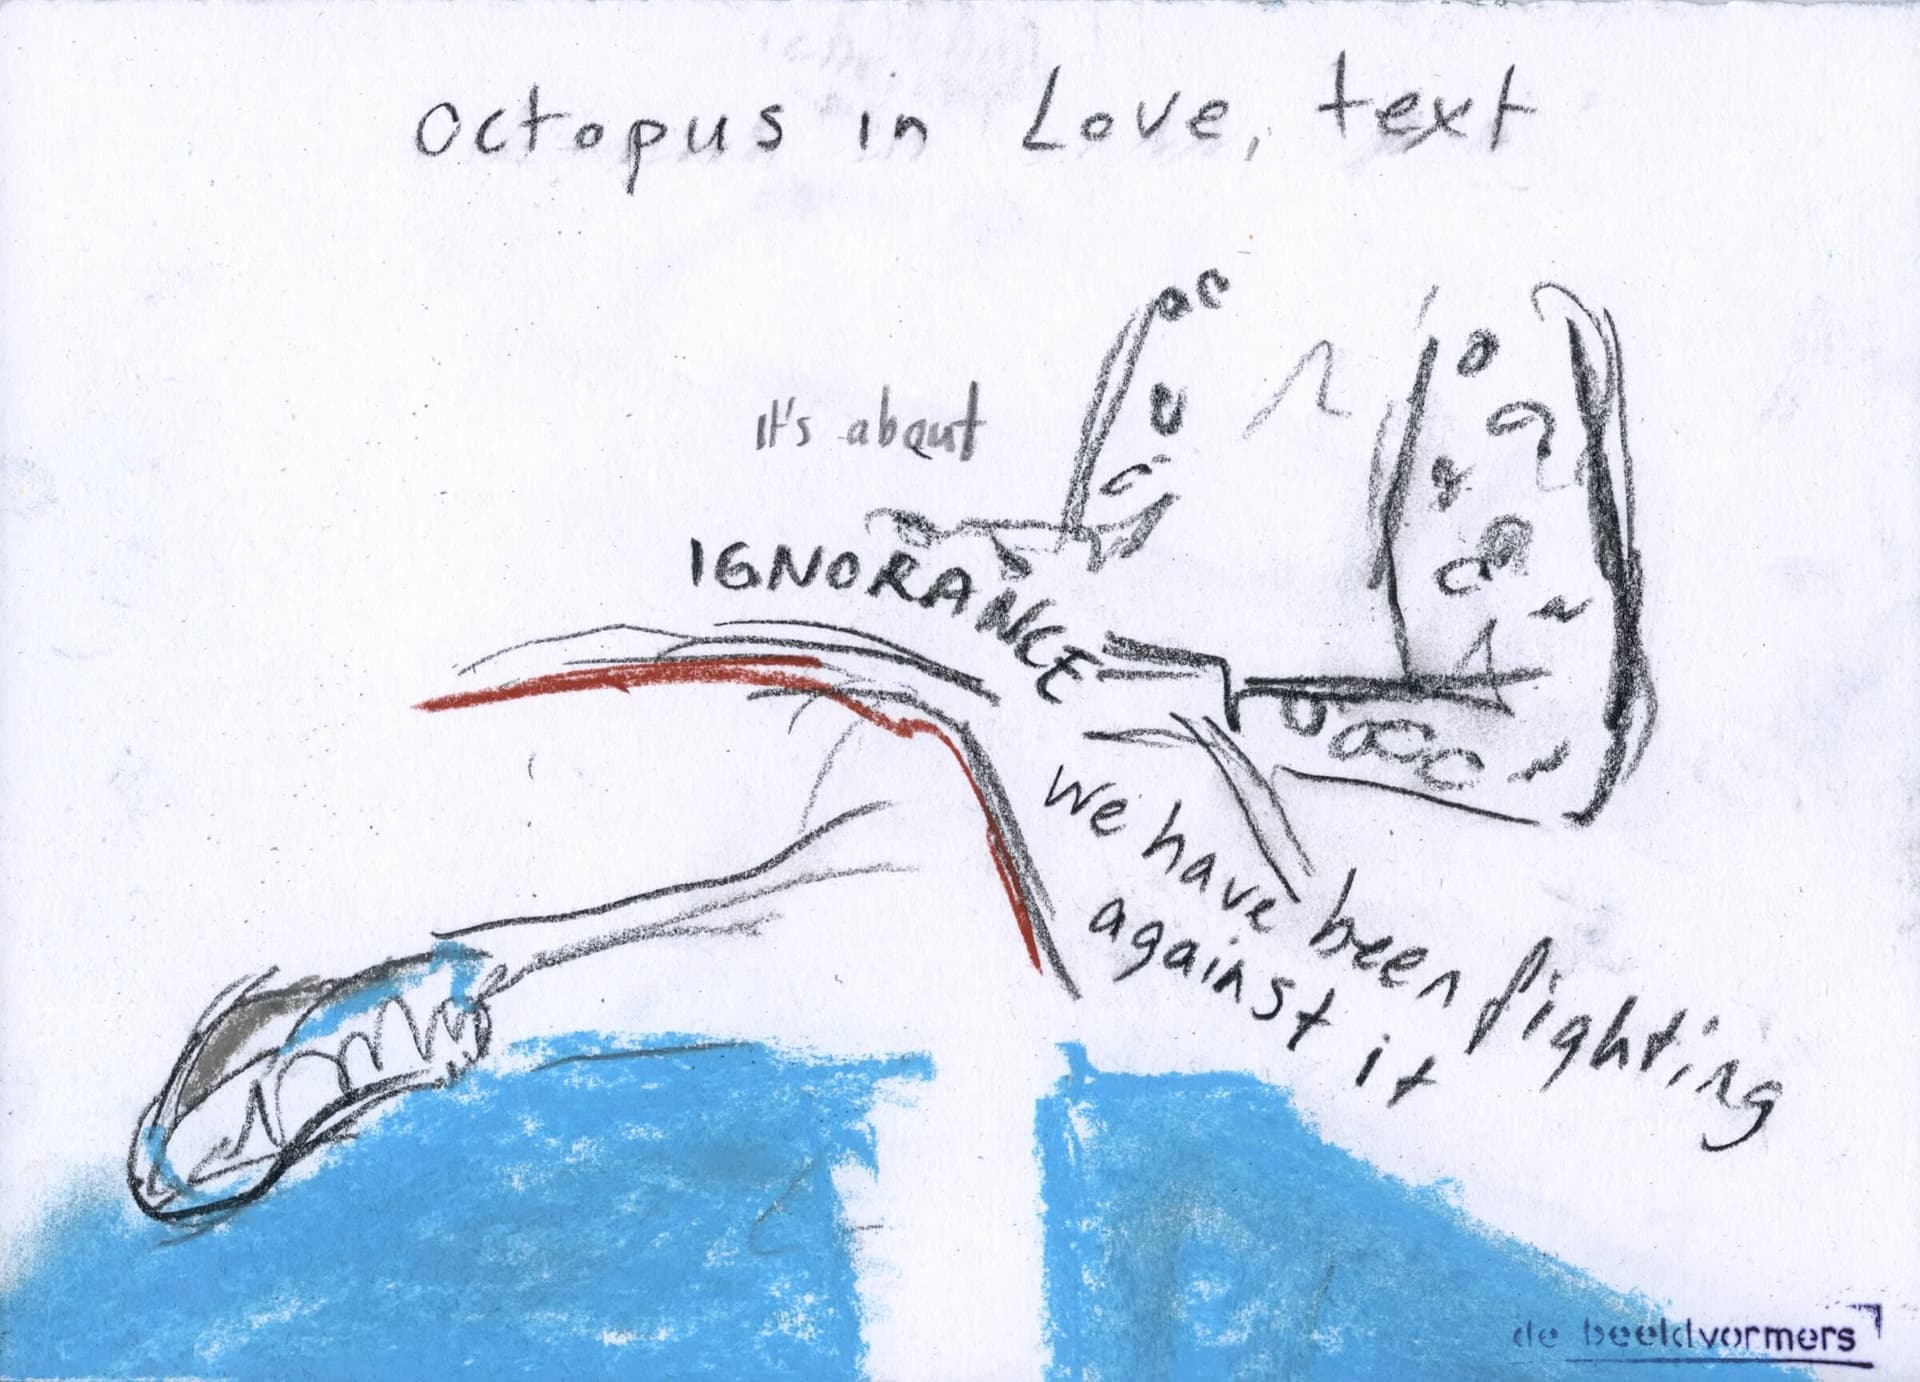 Octopus in Love, text
it's about
IGNORANCE
we have been fighting
against it
de beeldvormers